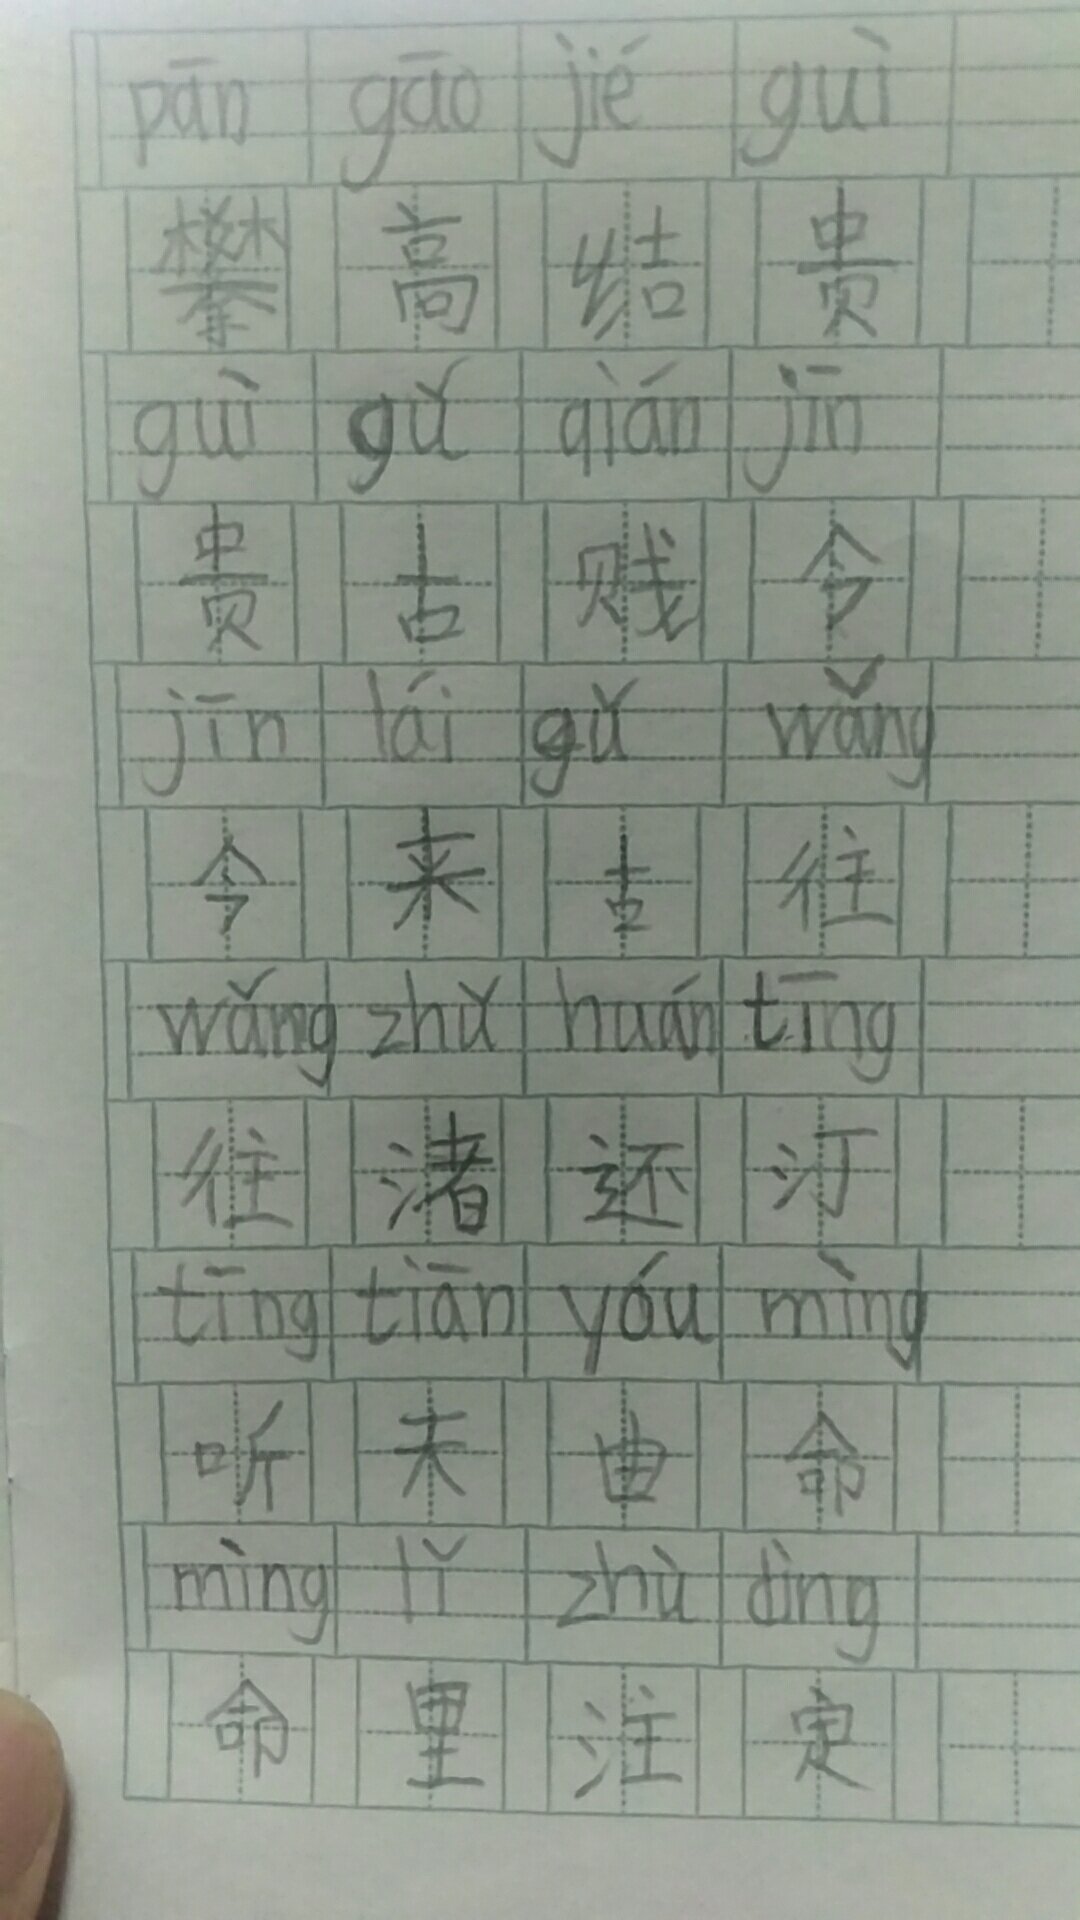 pān gāo jié guì
攀高结贵
guì gǔ qián jīn
贵古贱今
jīn lái gǔ wǎng
今来古往
wǎng zhǔ huán tīng
往渚还汀
tīng tiān yóu mìng
听天由命
mìng lǐ zhù dìng
命里注定